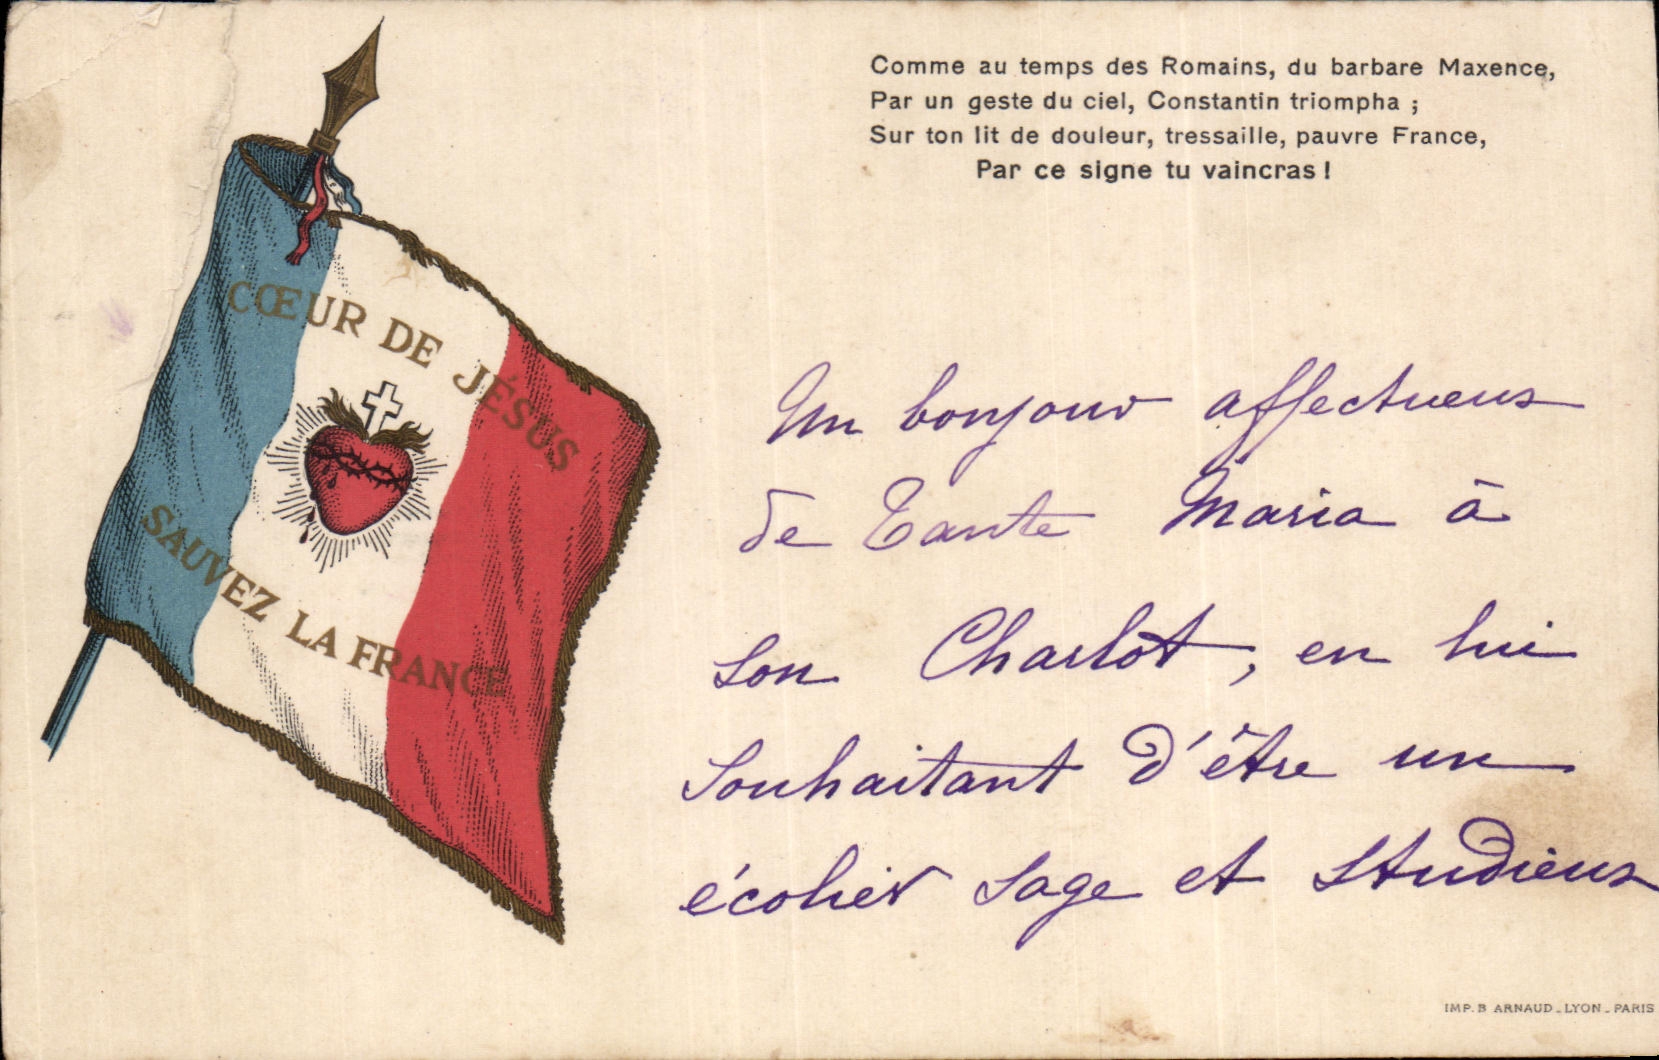 Comme au temps des Romains, du barbare Maxence,
Par un geste du ciel, Constantin triompha ;
Sur ton lit de douleur, tressaille, pauvre France,
Par ce signe tu vaincras !
CŒUR DE JÉSUS
SAUVEZ LA FRANCE
Un bonjour affectueux
de Tante Maria à
son Charlot, en lui
souhaitant d'être un
écolier sage et studieux
IMP. B ARNAUD - LYON - PARIS